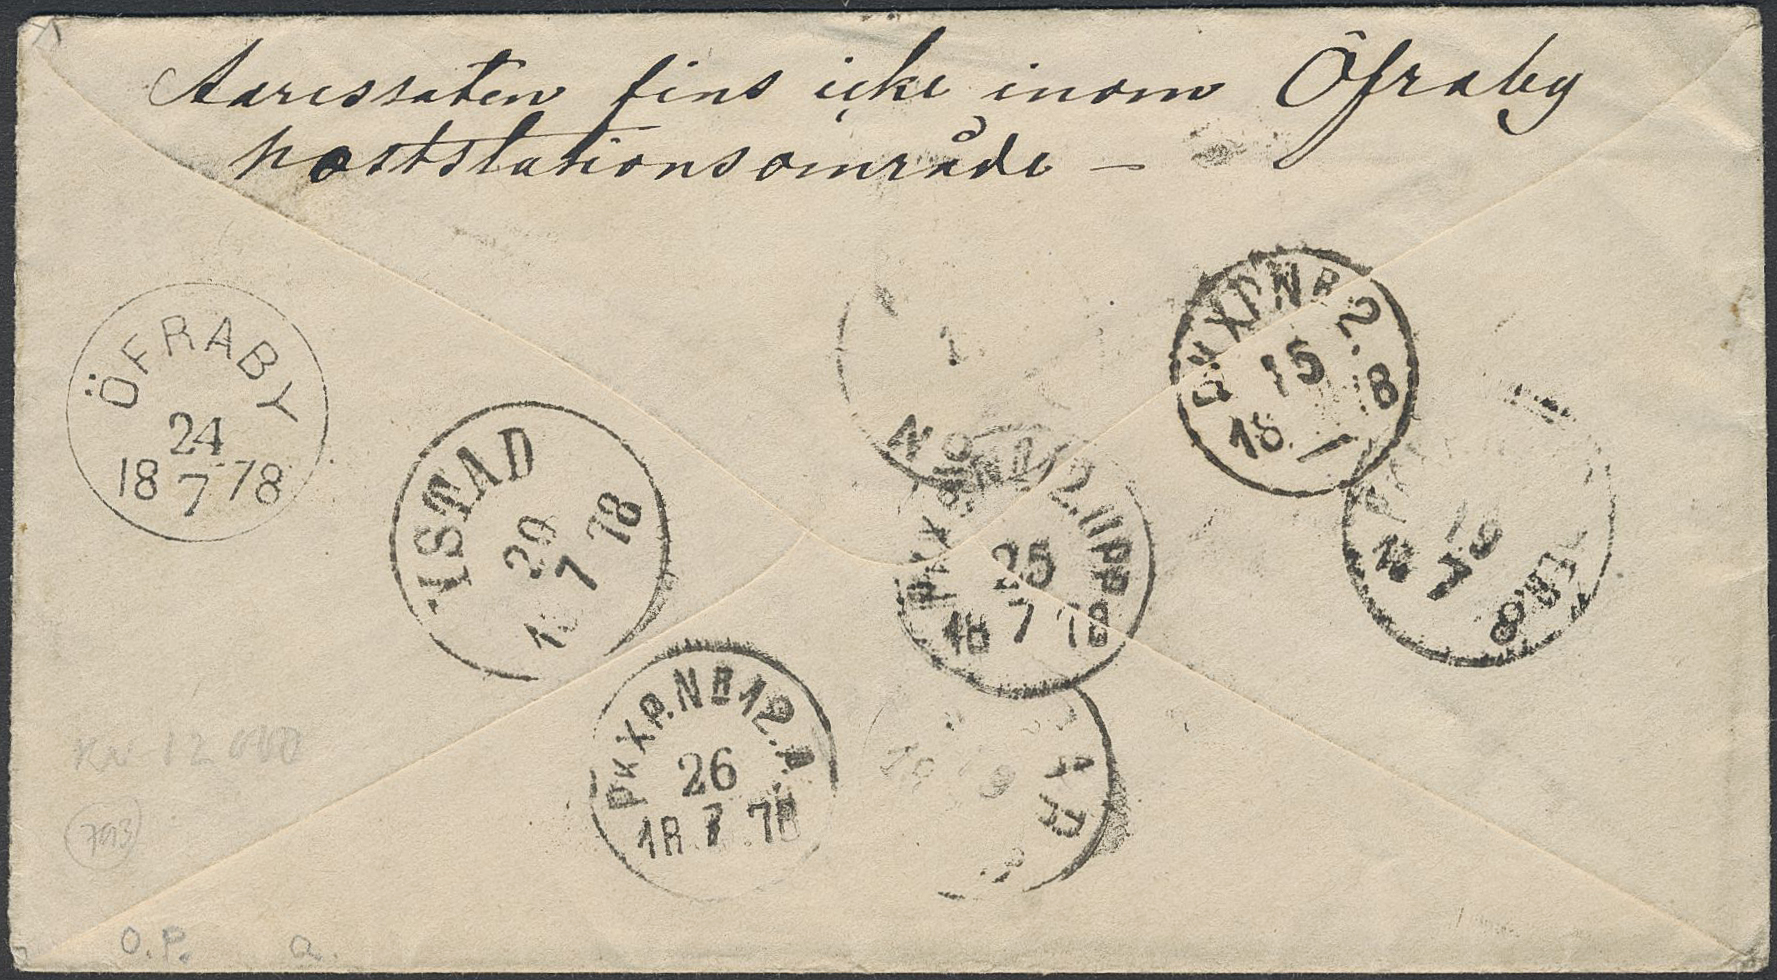 Adressaten fins icke inom Öfraby
poststationsområde —
ÖFRABY
24
18 7 78
YSTAD
20
7 78
PKXP.NR 2.
15
18 7 8
19
18 7
8
PKXP.NR 12.UPP
25
18 7 78
PKXP.NR 12.A
26
18 7 78
793
O.P.
a.